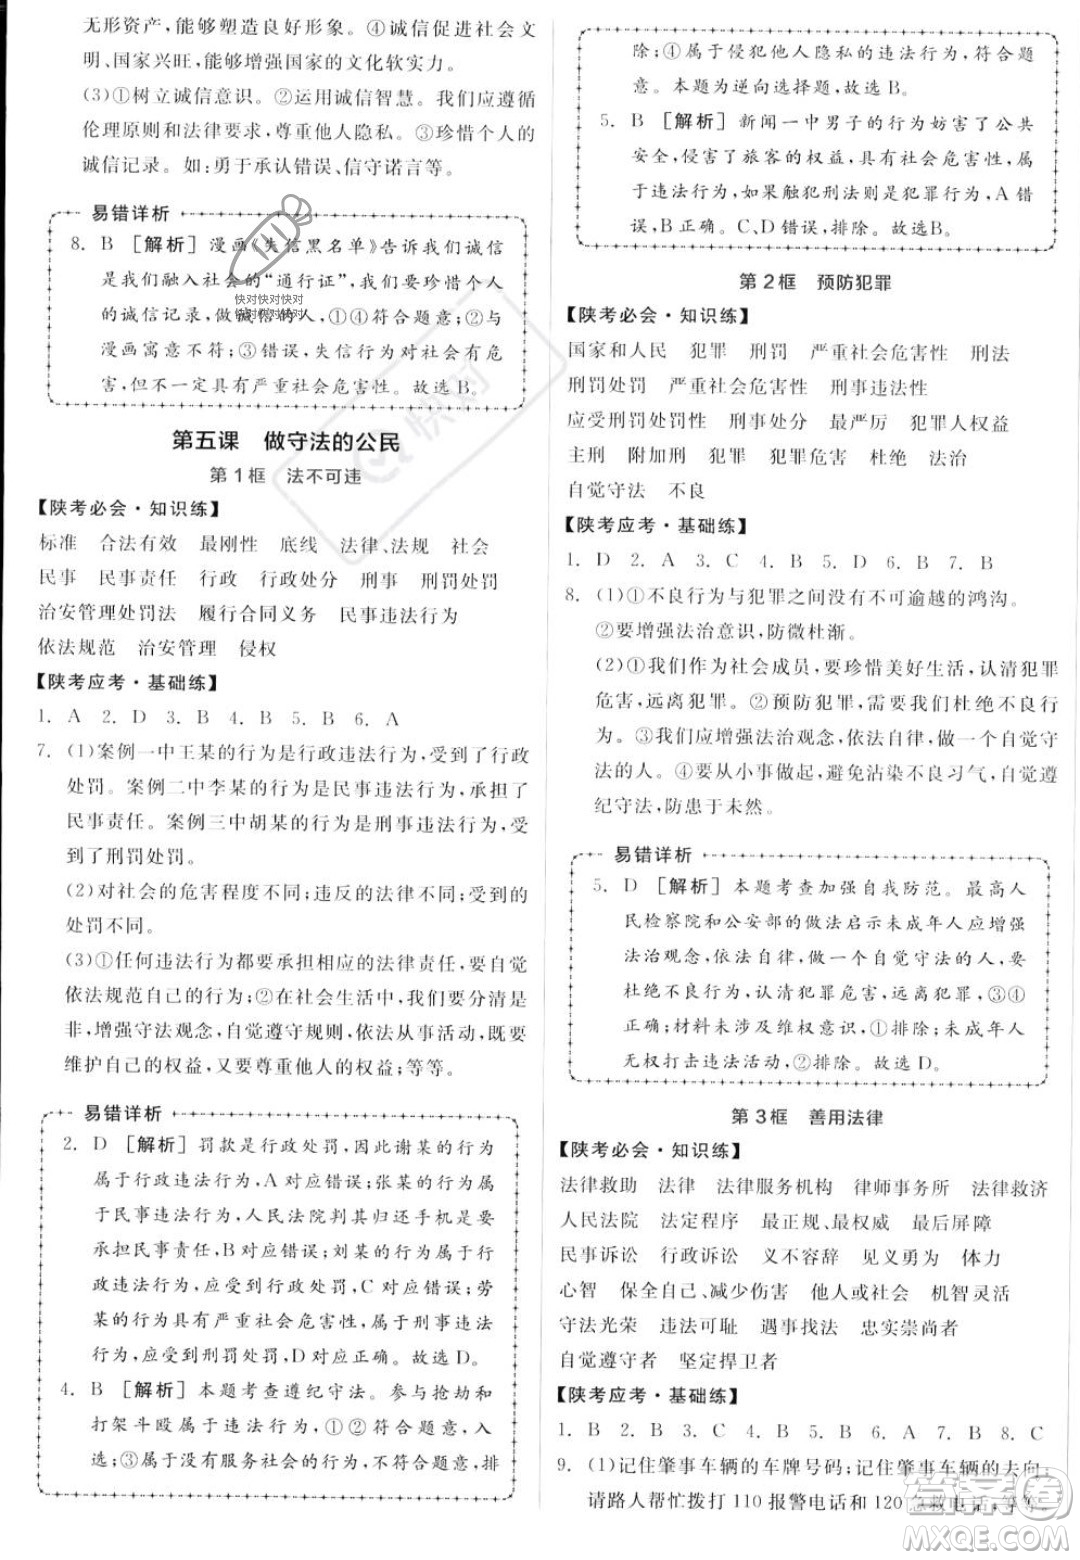 无形资产,能够塑造良好形象。④诚信促进社会文
明、国家兴旺,能够增强国家的文化软实力。
(3)①树立诚信意识。②运用诚信智慧。我们应遵循
伦理原则和法律要求,尊重他人隐私。③珍惜个人的
诚信记录。如:勇于承认错误、信守诺言等。
易错详析
8. B [解析] 漫画《失信黑名单》告诉我们诚信
是我们融入社会的“通行证”,我们要珍惜个人
的诚信记录,做诚信的人,①④符合题意;②与
漫画寓意不符;③错误,失信行为对社会有危
害,但不一定具有严重社会危害性。故选B。
第五课 做守法的公民
第1框 法不可违
【陕考必会·知识练】
标准 合法有效 最刚性 底线 法律、法规 社会
民事 民事责任 行政 行政处分 刑事 刑罚处罚
治安管理处罚法 履行合同义务 民事违法行为
依法规范 治安管理 侵权
【陕考应考·基础练】
1. A 2. D 3. B 4. B 5. B 6. A
7. (1)案例一中王某的行为是行政违法行为,受到了行政
处罚。案例二中李某的行为是民事违法行为,承担了
民事责任。案例三中胡某的行为是刑事违法行为,受
到了刑罚处罚。
(2)对社会的危害程度不同;违反的法律不同;受到的
处罚不同。
(3)①任何违法行为都要承担相应的法律责任,要自觉
依法规范自己的行为;②在社会生活中,我们要分清是
非,增强守法观念,自觉遵守规则,依法从事活动,既要
维护自己的权益,又要尊重他人的权益;等等。
易错详析
2. D [解析] 罚款是行政处罚,因此谢某的行为
属于行政违法行为,A对应错误;张某的行为
属于民事违法行为,人民法院判其归还手机要
承担民事责任,B对应错误;刘某的行为属于行
政违法行为,应受到行政处罚,C对应错误;劳
某的行为具有严重社会危害性,属于刑事违法
行为,应受到刑罚处罚,D对应正确。故选D。
4. B [解析] 本题考查遵纪守法。参与抢劫和
打架斗殴属于违法行为,①②符合题意,入
选;③属于没有服务社会的行为,不合题意,排
除;④属于侵犯他人隐私的违法行为,符合题
意。本题为逆向选择题,故选B。
5. B [解析] 新闻一中男子的行为妨害了公共
安全,侵害了旅客的权益,具有社会危害性,属
于违法行为,如果触犯刑法则是犯罪行为,A错
误,B正确。C、D错误,排除。故选B。
第2框 预防犯罪
【陕考必会·知识练】
国家和人民 犯罪 刑罚 严重社会危害性 刑法
刑罚处罚 严重社会危害性 刑事违法性
应受刑罚处罚性 刑事处分 最严厉 犯罪人权益
主刑 附加刑 犯罪 犯罪危害 杜绝 法治
自觉守法 不良
【陕考应考·基础练】
1. D 2. A 3. C 4. B 5. D 6. B 7. B
8. (1)①不良行为与犯罪之间没有不可逾越的鸿沟。
②要增强法治意识,防微杜渐。
(2)①我们作为社会成员,要珍惜美好生活,认清犯罪
危害,远离犯罪。②预防犯罪,需要我们杜绝不良行
为。③我们应增强法治观念,依法自律,做一个自觉守
法的人。④要从小事做起,避免沾染不良习气,自觉遵
纪守法,防患于未然。
易错详析
5. D [解析] 本题考查加强自我防范。最高人
民检察院和公安部的做法启示未成年人应增强
法治观念,依法自律,做一个自觉守法的人,要
杜绝不良行为,认清犯罪危害,远离犯罪,③④
正确;材料未涉及维权意识,①排除;未成年人
无权打击违法活动,②排除。故选D。
第3框 善用法律
【陕考必会·知识练】
法律救助 法律 法律服务机构 律师事务所 法律救济
人民法院 法定程序 最正规、最权威 最后屏障
民事诉讼 行政诉讼 义不容辞 见义勇为 体力
心智 保全自己、减少伤害 他人或社会 机智灵活
守法光荣 违法可耻 遇事找法 忠实崇尚者
自觉遵守者 坚定捍卫者
【陕考应考·基础练】
1. B 2. B 3. C 4. B 5. B 6. A 7. B 8. C
9. (1)记住肇事车辆的车牌号码;记住肇事车辆的去向;
请路人帮忙拨打110报警电话和120急救电话;等等。
快对快对快对
快对快对快对
快对
答案圈
MXQE.COM